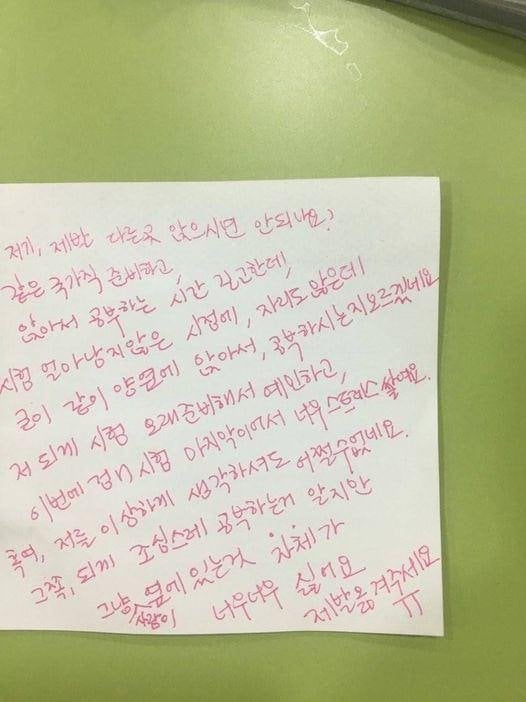 저기, 제발 다른곳 앉으시면 안되나요?
같은 국가직 준비하고,
앉아서 공부하는 시간 길고한데,
시험 얼마남지않은 시점에, 자리도 많은데
굳이 같이 양옆에 앉아서, 공부하시는지모르겠네요
저 되게 시험 오래준비해서 예민하고,
이번에 정말 시험 마지막이어서 너무 스트레스 쌓여요.
혹여, 저를 이상하게 생각하셔도 어쩔수없네요.
그쪽, 되게 조심스레 공부하는거 알지만
그냥 사람이 옆에 있는것 자체가
너무너무 싫어요
제발옮겨주세요
ㅠ